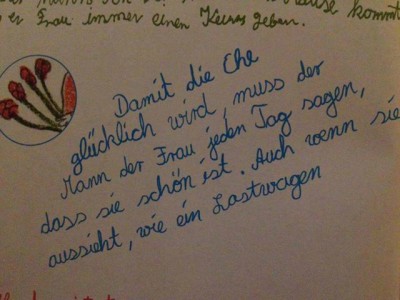 kommt
er Frau immer einen Keines geben.
Damit die Ehe
glücklich wird, muss der
Mann der Frau jeden Tag sagen,
dass sie schön ist. Auch wenn sie
aussieht, wie ein Lastwagen